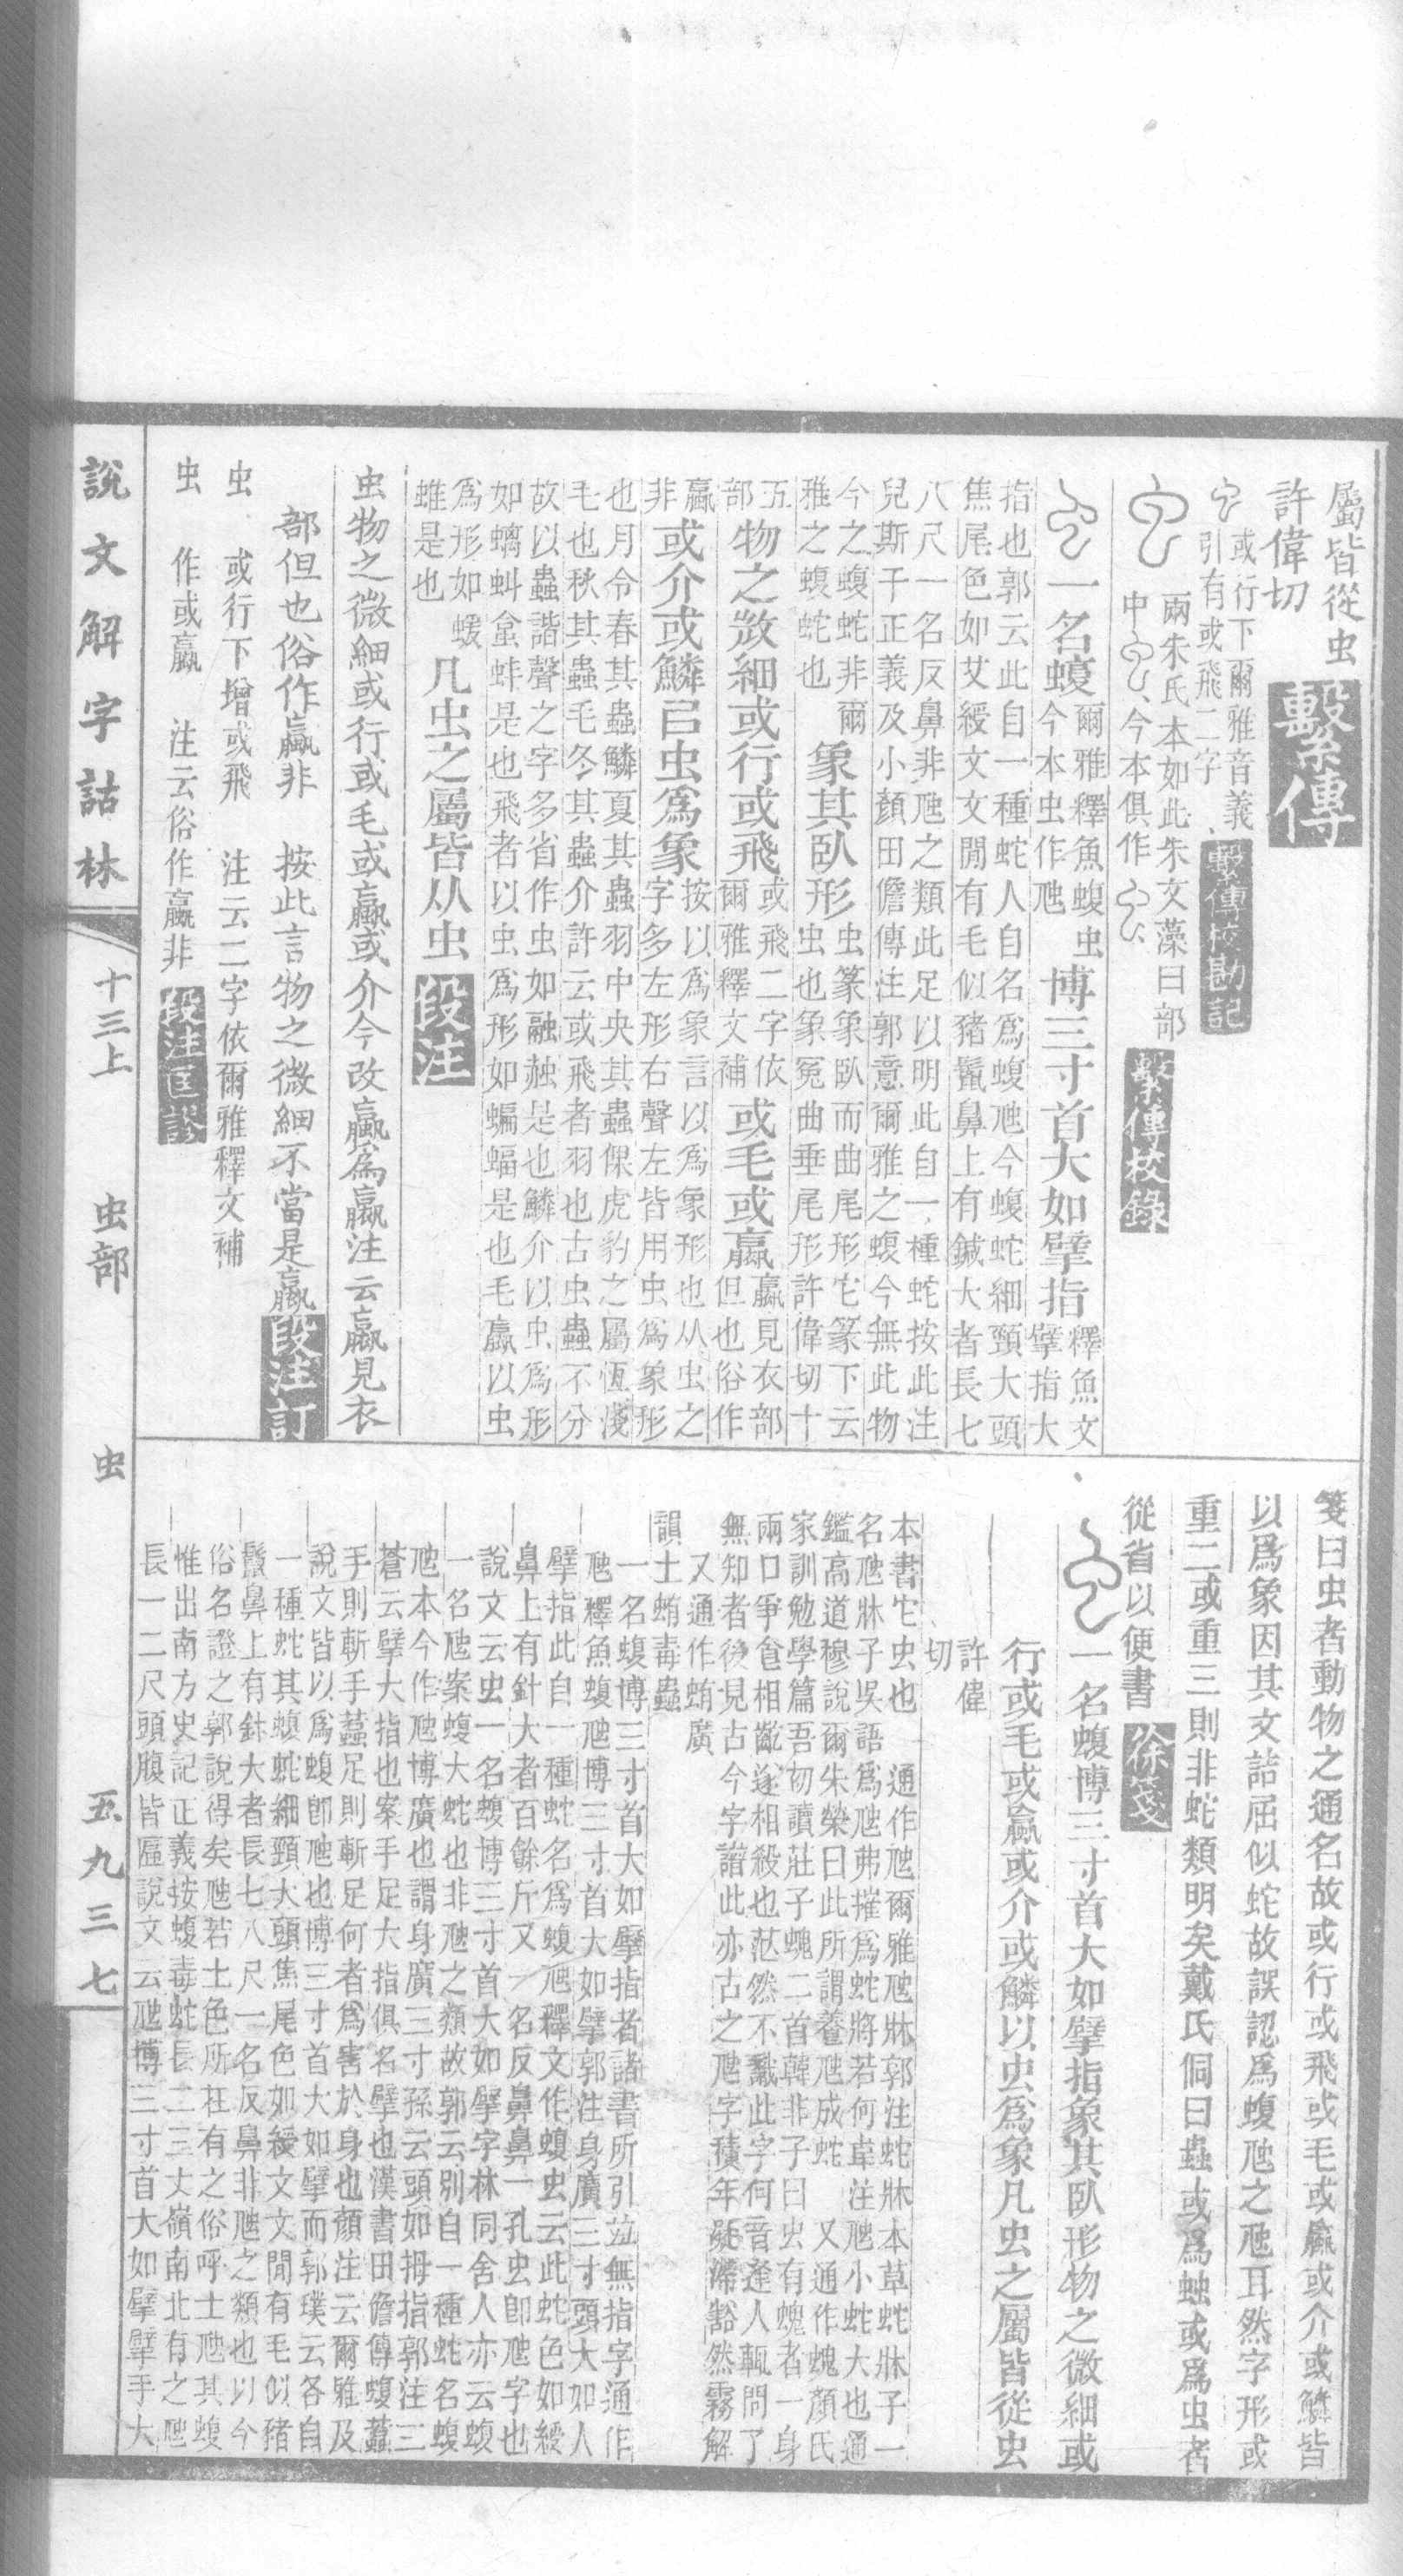 屬皆從虫
許偉切
繫傳
或行下爾雅音義
引有或飛二字
繫傳校勘記
兩朱氏本如此朱文藻曰部
中今本俱作
繫傳校錄
一名蝮
爾雅釋魚蝮虫
今本虫作虺
博三寸首大如擘指
釋魚文
擘指大
指也郭云此自一種蛇人自名爲蝮虺今蝮蛇細頸大頭
焦尾色如艾綬文文閒有毛似豬鬣鼻上有鍼大者長七
八尺一名反鼻非虺之類此足以明此自一種蛇按此注
兒斯干正義及小顏田儋傳注郭意爾雅之蝮今無此物
今之蝮蛇非爾
雅之蝮蛇也
象其臥形
虫篆象臥而曲尾形它篆下云
虫也象冤曲垂尾形許偉切十
五
部
物之㣲細或行或飛
或飛二字依
爾雅釋文補
或毛或蠃
蠃見衣部
但也俗作
臝
非
或介或鱗㠯虫爲象
按以爲象言以爲象形也从虫之
字多左形右聲左皆用虫爲象形
也月令春其蟲鱗夏其蟲羽中央其蟲倮虎豹之屬恆淺
毛也秋其蟲毛冬其蟲介許云或飛者羽也古虫蟲不分
故以蟲諧聲之字多省作虫如融赨是也鱗介以虫爲形
如螭虯蚌是也飛者以虫爲形如蝙蝠是也毛蠃以虫
爲形如蝯
蜼是也
凡虫之屬皆从虫
段注
虫物之微細或行或毛或蠃或介今改蠃爲臝注云臝見衣
部但也俗作蠃非　按此言物之微細不當是臝
段注訂
虫　或行下增或飛　注云二字依爾雅釋文補
虫　作或臝　注云俗作蠃非
段注匡謬
說文解字詁林
十三上
虫部
虫
五九三七
箋曰虫者動物之通名故或行或飛或毛或蠃或介或鱗皆
以爲象因其文詰屈似蛇故誤認爲蝮虺之虺耳然字形或
重二或重三則非蛇類明矣戴氏侗曰蟲或爲䖵或爲虫者
從省以便書
徐箋
一名蝮博三寸首大如擘指象其臥形物之微細或
行或毛或蠃或介或鱗以虫爲象凡虫之屬皆從虫
許偉
切
本書它虫也　通作虺爾雅虺牀郭注蛇牀本草蛇牀子一
名虺牀子吳語爲虺弗摧爲蛇將若何韋注虺小蛇大也通
鑑高道穆說爾朱榮曰此所謂養虺成蛇　又通作螝顏氏
家訓勉學篇吾初讀莊子螝二首韓非子曰虫有螝者一身
兩口爭食相齕遂相殺也茫然不識此字何音逢人輒問了
無知者後見古今字譜此亦古之虺字積年凝滯豁然霧解
又通作蛕廣
韻土蛕毒蟲
一名蝮博三寸首大如擘指者諸書所引竝無指字通作
虺釋魚蝮虺博三寸首大如擘郭注身廣三寸頭大如人
擘指此自一種蛇名爲蝮虺釋文作蝮虫云此蛇色如綬
鼻上有針大者百餘斤又一名反鼻鼻一孔虫卽虺字也
說文云虫一名蝮博三寸首大如擘字林同舍人亦云蝮
一名虺案蝮大蛇也非虺之類故郭云別自一種蛇名蝮
虺本今作虺博廣也謂身廣三寸孫云頭如拇指郭注三
蒼云擘大指也案手足大指俱名擘也漢書田儋傳蝮蠚
手則斬手蠚足則斬足何者爲害於身也顏注云爾雅及
說文皆以爲蝮卽虺也博三寸首大如擘而郭璞云各自
一種蛇其蝮蛇細頸大頭焦尾色如綬文文閒有毛似豬
鬣鼻上有針大者長七八尺一名反鼻非虺之類也以今
俗名證之郭說得矣虺若土色所在有之俗呼土虺其蝮
惟出南方史記正義按蝮毒蛇長二三丈嶺南北有之虺
長一二尺頭腹皆匾說文云虺博三寸首大如擘擘手大